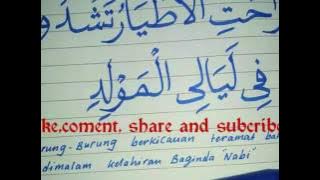 احَتِ الْأَطْيَارُ تَشْدُو
فِي لَيَالِى الْمَوْلِدِ
ke.coment. share and subcribe
rung-Burung berkicauan teramat ba
dimalam kelahiran Baginda Nabi"